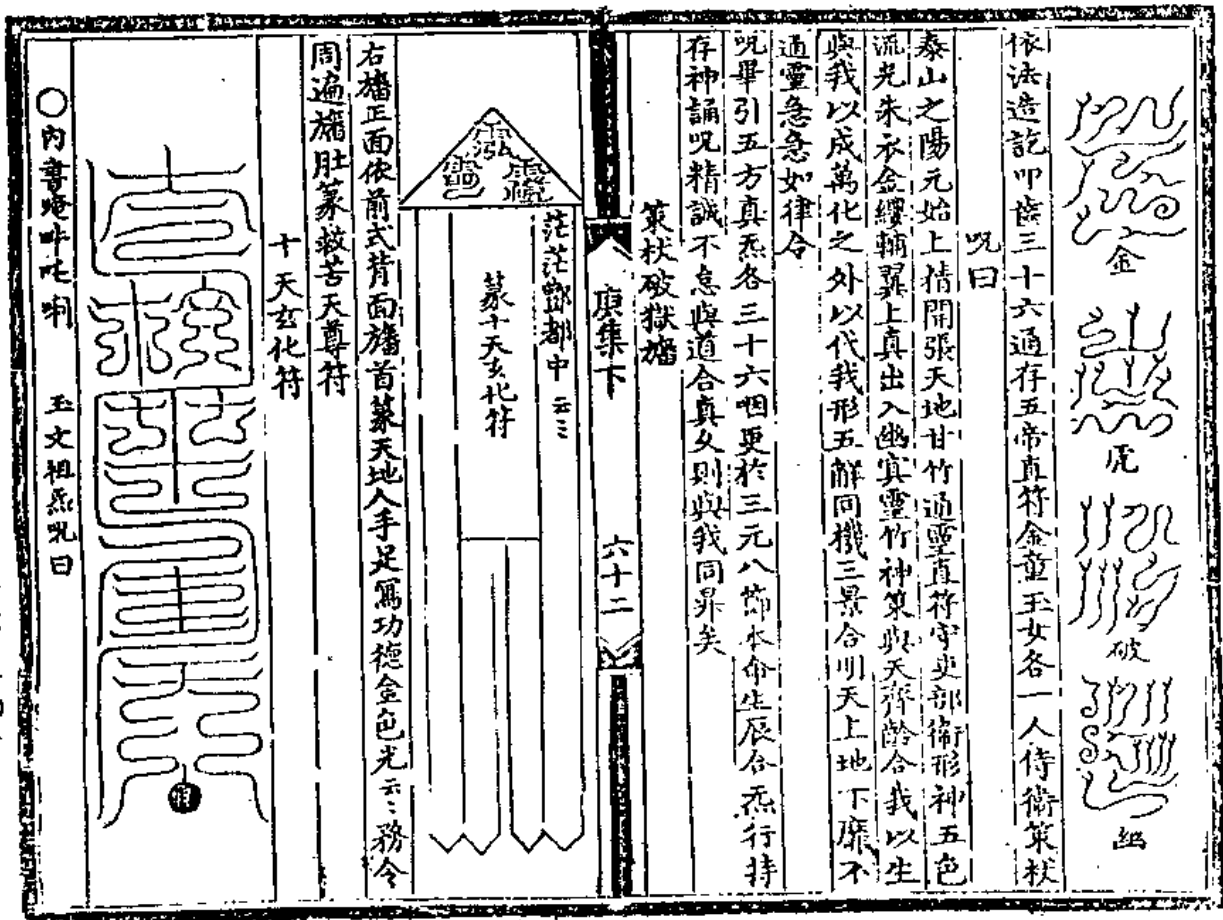 金
虎
破
幽
依法造訖叩齒三十六通存五帝直符金童玉女各一人侍衛策杖
呪曰
泰山之陽元始上精開張天地甘竹通靈直符守吏部衛形神五色
流光朱衣金纓輔翼上真出入幽冥靈竹神策與天齊齡合我以生
與我以成萬化之外以代我形五解同機三景合明天上地下靡不
通靈急急如律令
呪畢引五方真炁各三十六咽更於三元八節本命生辰合炁行持
存神誦呪精誠不怠與道合真久則與我同昇矣
策杖破獄旛
庚集下
六十二
茫茫酆都中云〻
篆十天玄化符
右旛正面依前式背面旛首篆天地人手足寫功德金色光云〻務令
周遍旛肚篆救苦天尊符
十天玄化符
〇內書唵吽吒唎 玉文祖炁呪曰